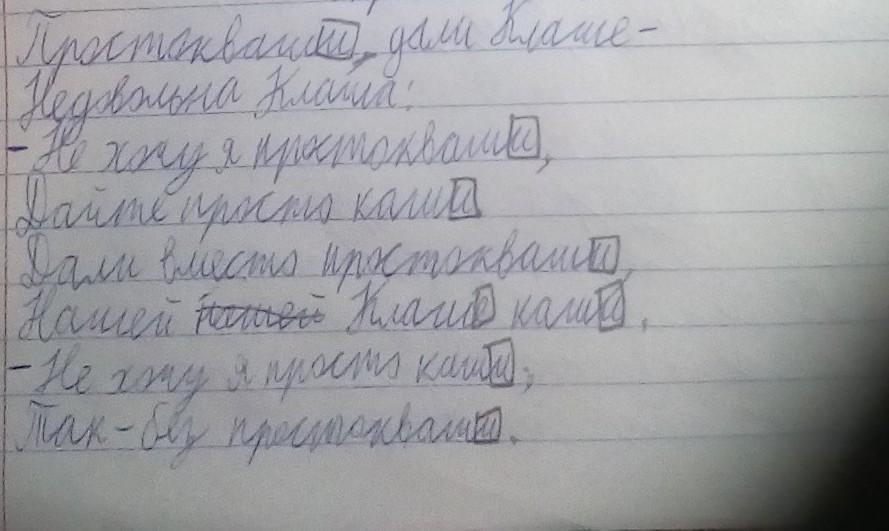 Простокваши, дали Клаше -
Недовольна Клаша:
- Не хочу я простокваши,
Дайте просто каши
Дали вместо простокваши,
Нашей Клаше каши.
- Не хочу я просто каши,
Так - без простокваши.